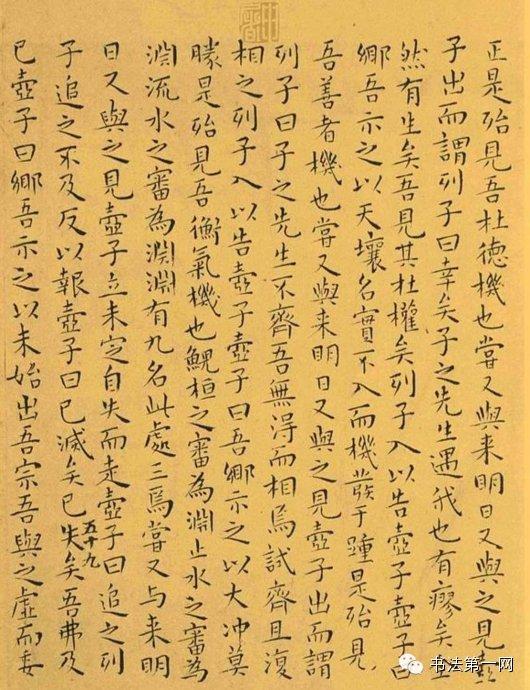 正是殆見吾杜德機也嘗又與来明日又與之見壺
子出而謂列子曰幸矣子之先生遇我也有瘳矣全
然有生矣吾見其杜權矣列子入以告壺子壺子曰
鄉吾示之以天壤名實不入而機發于踵是殆見
吾善者機也嘗又與来明日又與之見壺子出而謂
列子曰子之先生不齊吾無淂而相焉試齊且復
相之列子入以告壺子壺子曰吾鄉示之以大冲莫
朕是殆見吾衡氣機也鯢桓之審為淵止水之審為
淵流水之審為淵淵有九名此處三焉嘗又与来明
日又與之見壺子立未定自失而走壺子曰追之列
子追之不及反以報壺子曰已滅矣已失矣吾弗及
五十九
已壺子曰鄉吾示之以未始出吾宗吾與之虛而委
书法第一网